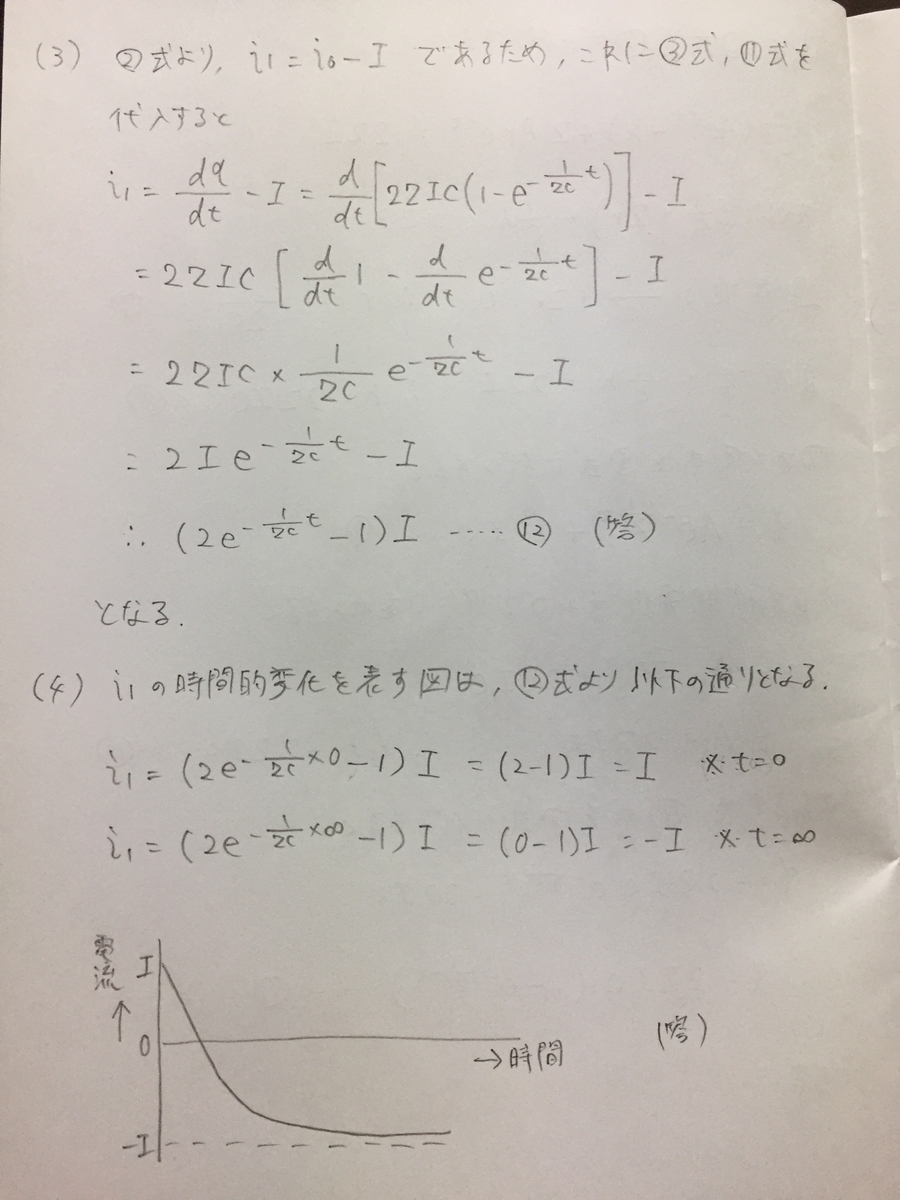 (3) ②式より, i₁ = i₀ - I であるため, これに③式, ⑪式を
代入すると
i₁ = dq/dt - I = d/dt [2ZIC(1 - e^(-1/ZC t))] - I
= 2ZIC [d/dt 1 - d/dt e^(-1/ZC t)] - I
= 2ZIC × 1/ZC e^(-1/ZC t) - I
= 2Ie^(-1/ZC t) - I
∴ (2e^(-1/ZC t) - 1)I ..... ⑫ (答)
となる.
(4) i₁の時間的変化を表す図は, ⑫式より以下の通りとなる.
i₁ = (2e^(-1/ZC ×0) - 1)I = (2-1)I = I ※ t=0
i₁ = (2e^(-1/ZC ×∞) - 1)I = (0-1)I = -I ※ t=∞
電流
↑
I
0
→時間
(答)
-I